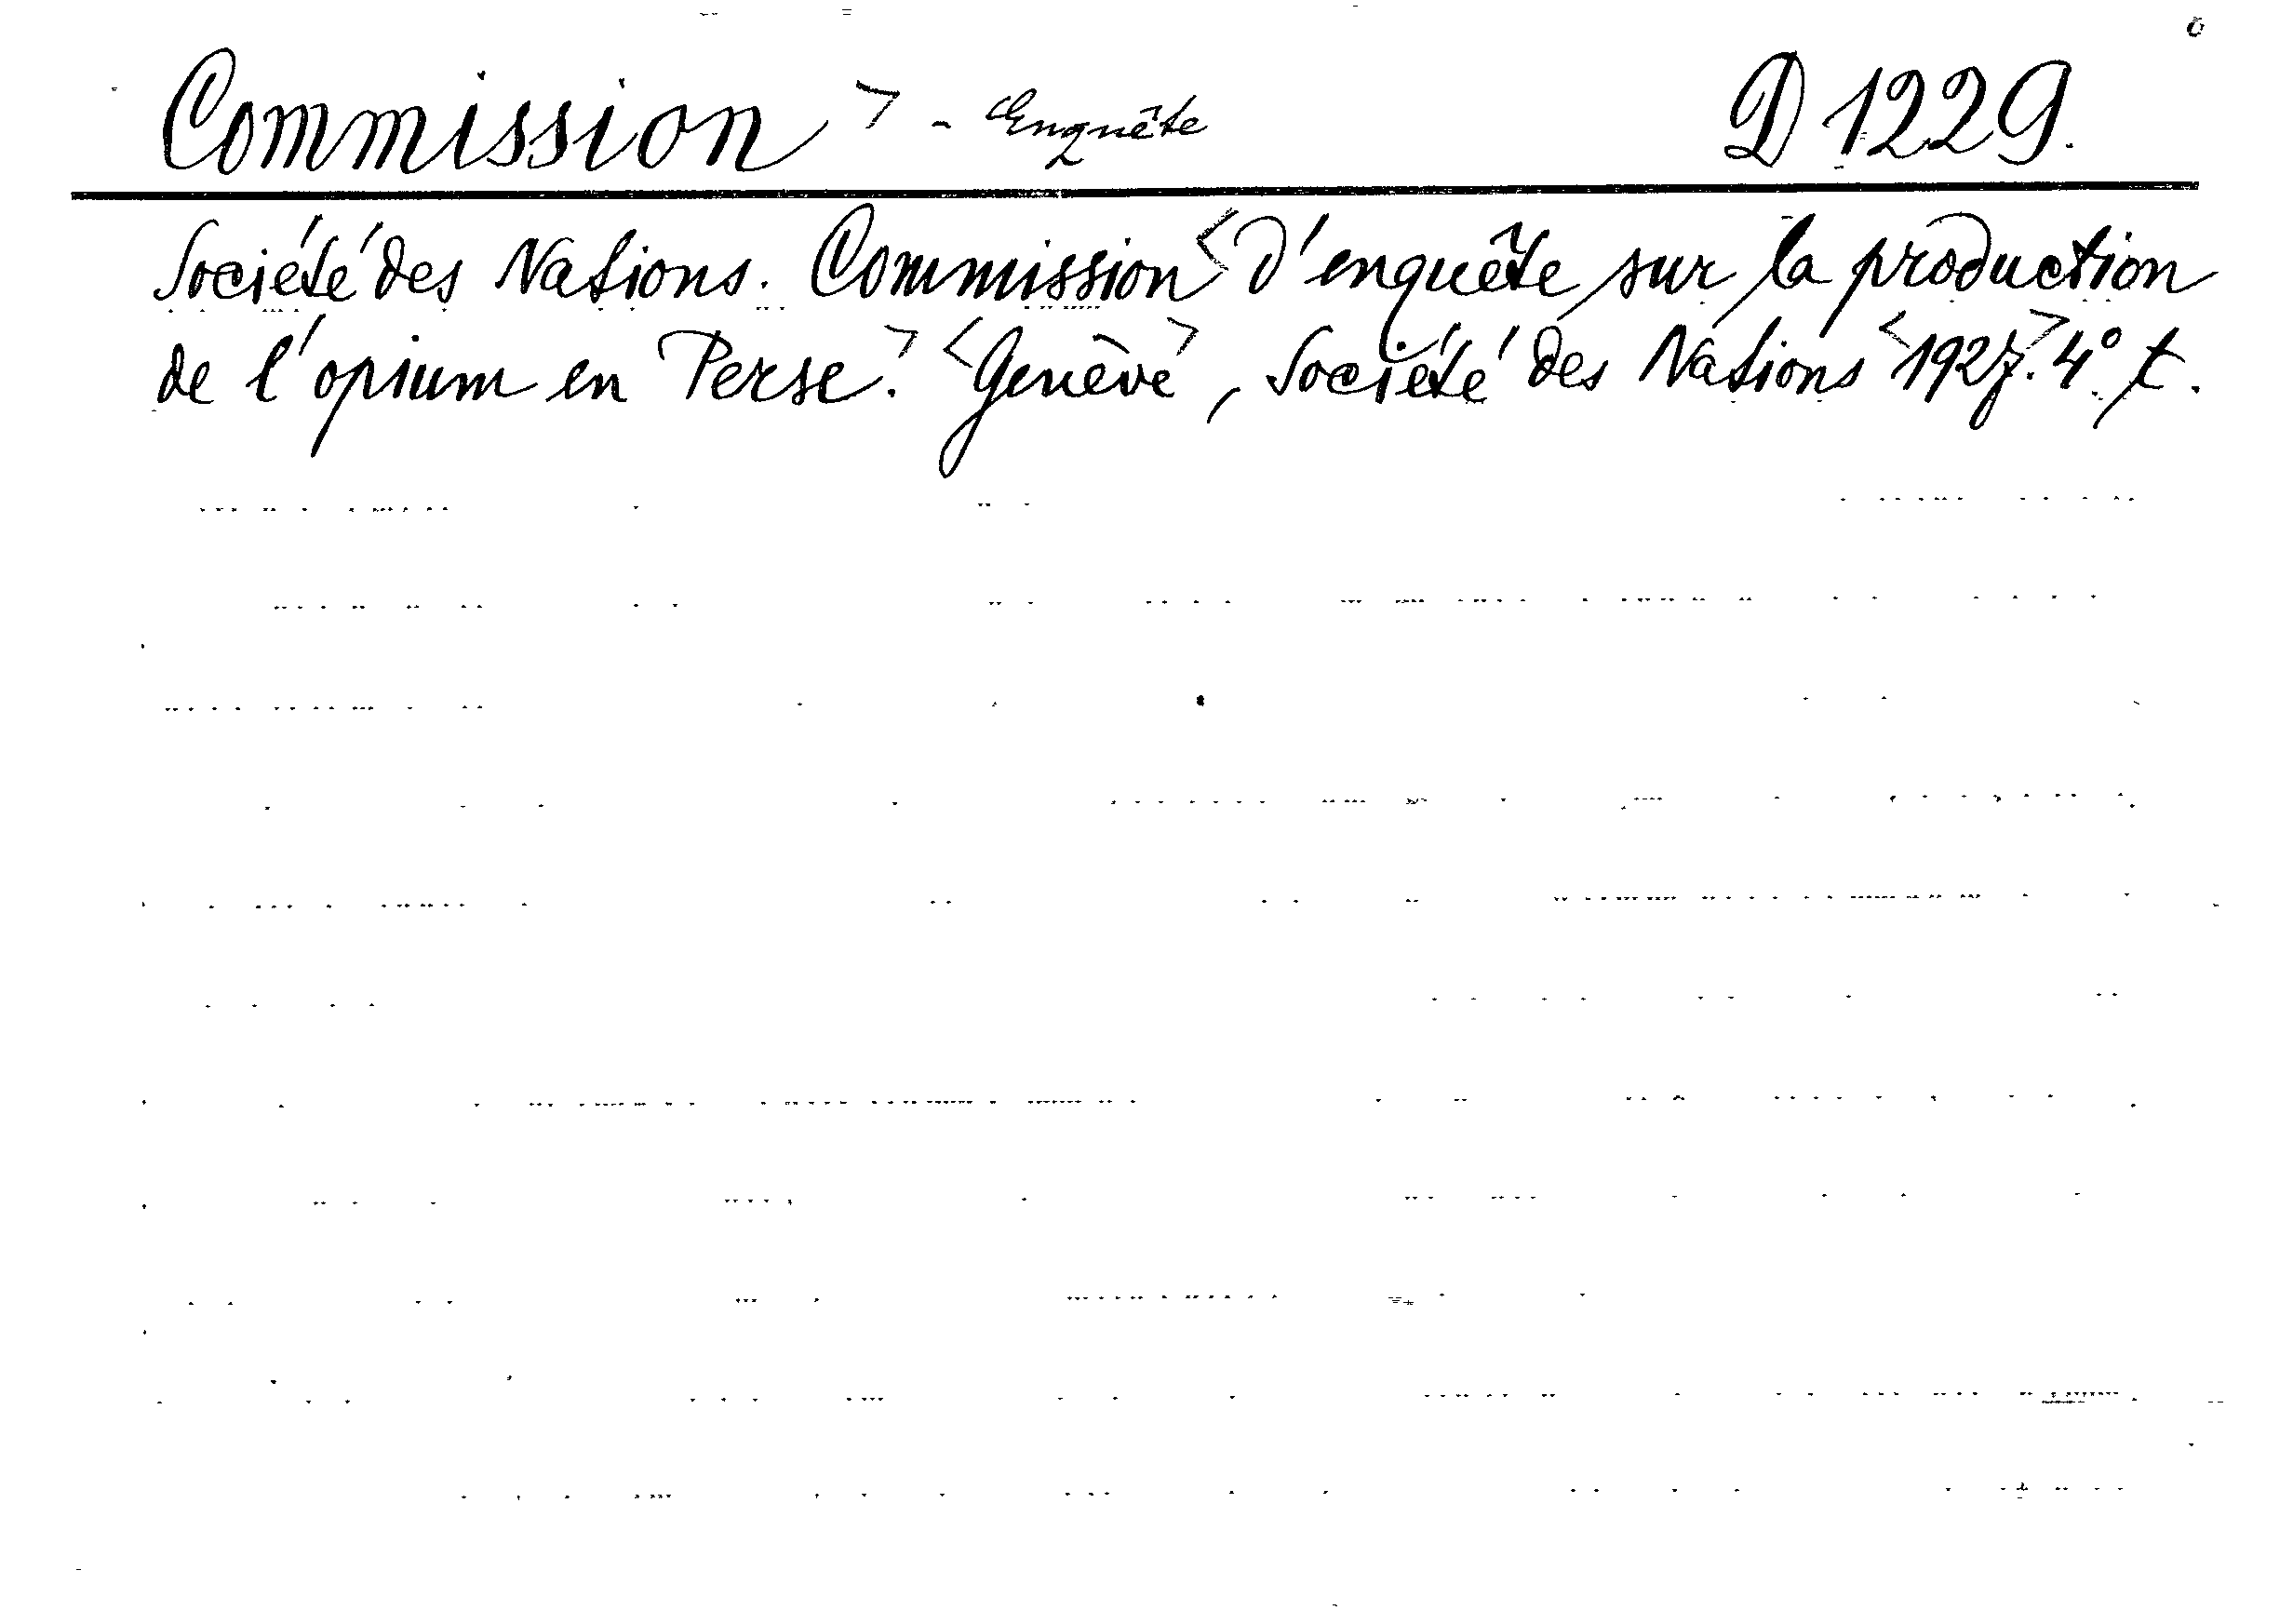 Commission > - Enquête D 1229.
Société des Nations. Commission < d'enquête sur la production
de l'opium en Perse. > < Genève >, Société des Nations < 1927. > 4° t.